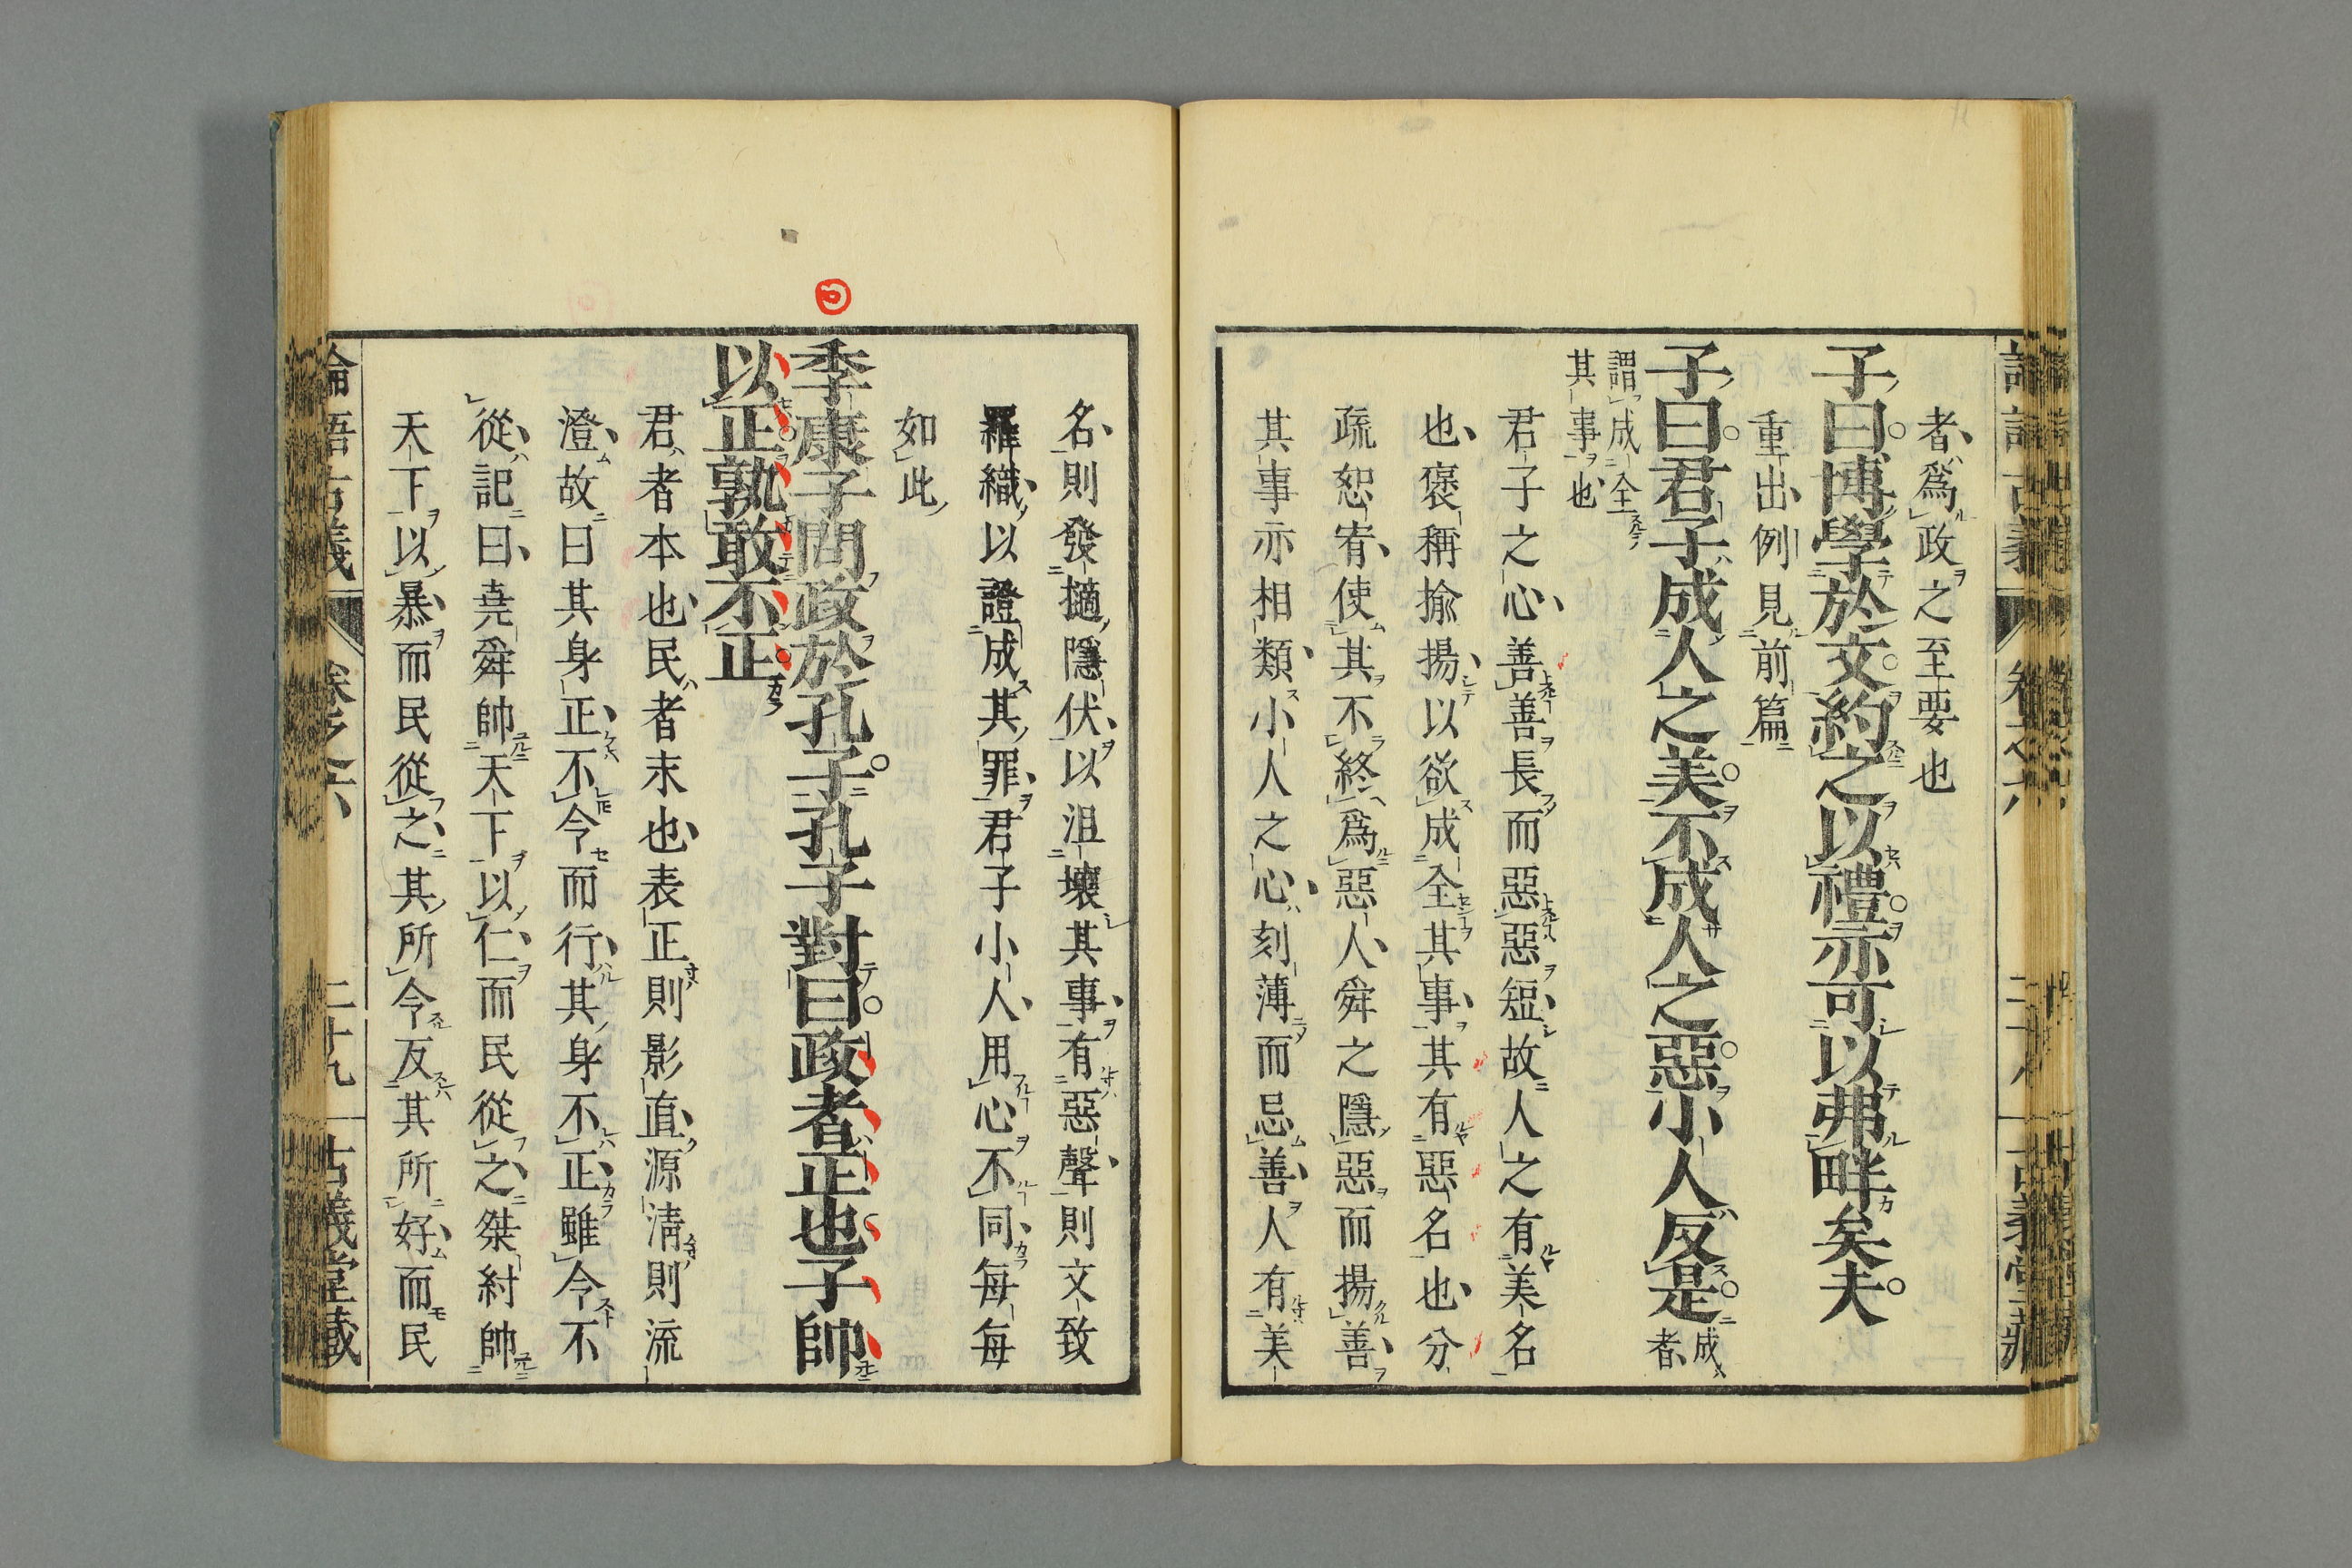 者爲政之至要也
子曰博學於文約之以禮亦可以弗畔矣夫
重出例見前篇
子曰君子成人之美不成人之惡小人反是
成者
謂成全
其事也
君子之心善善長而惡惡短故人之有美名
也褒稱揄揚以欲成全其事其有惡名也分
疏恕宥使其不終爲惡人舜之隱惡而揚善
其事亦相類小人之心刻薄而忌善人有美
名則發擿隱伏以沮壞其事有惡聲則文致
羅織以證成其罪君子小人用心不同每每
如此
季康子問政於孔子孔子對曰政者正也子帥
以正孰敢不正
君者本也民者末也表正則影直源淸則流
澄故曰其身正不令而行其身不正雖令不
從記曰堯舜帥天下以仁而民從之桀紂帥
天下以暴而民從之其所令反其所好而民
論語古義 卷之六 二十九 古義堂藏